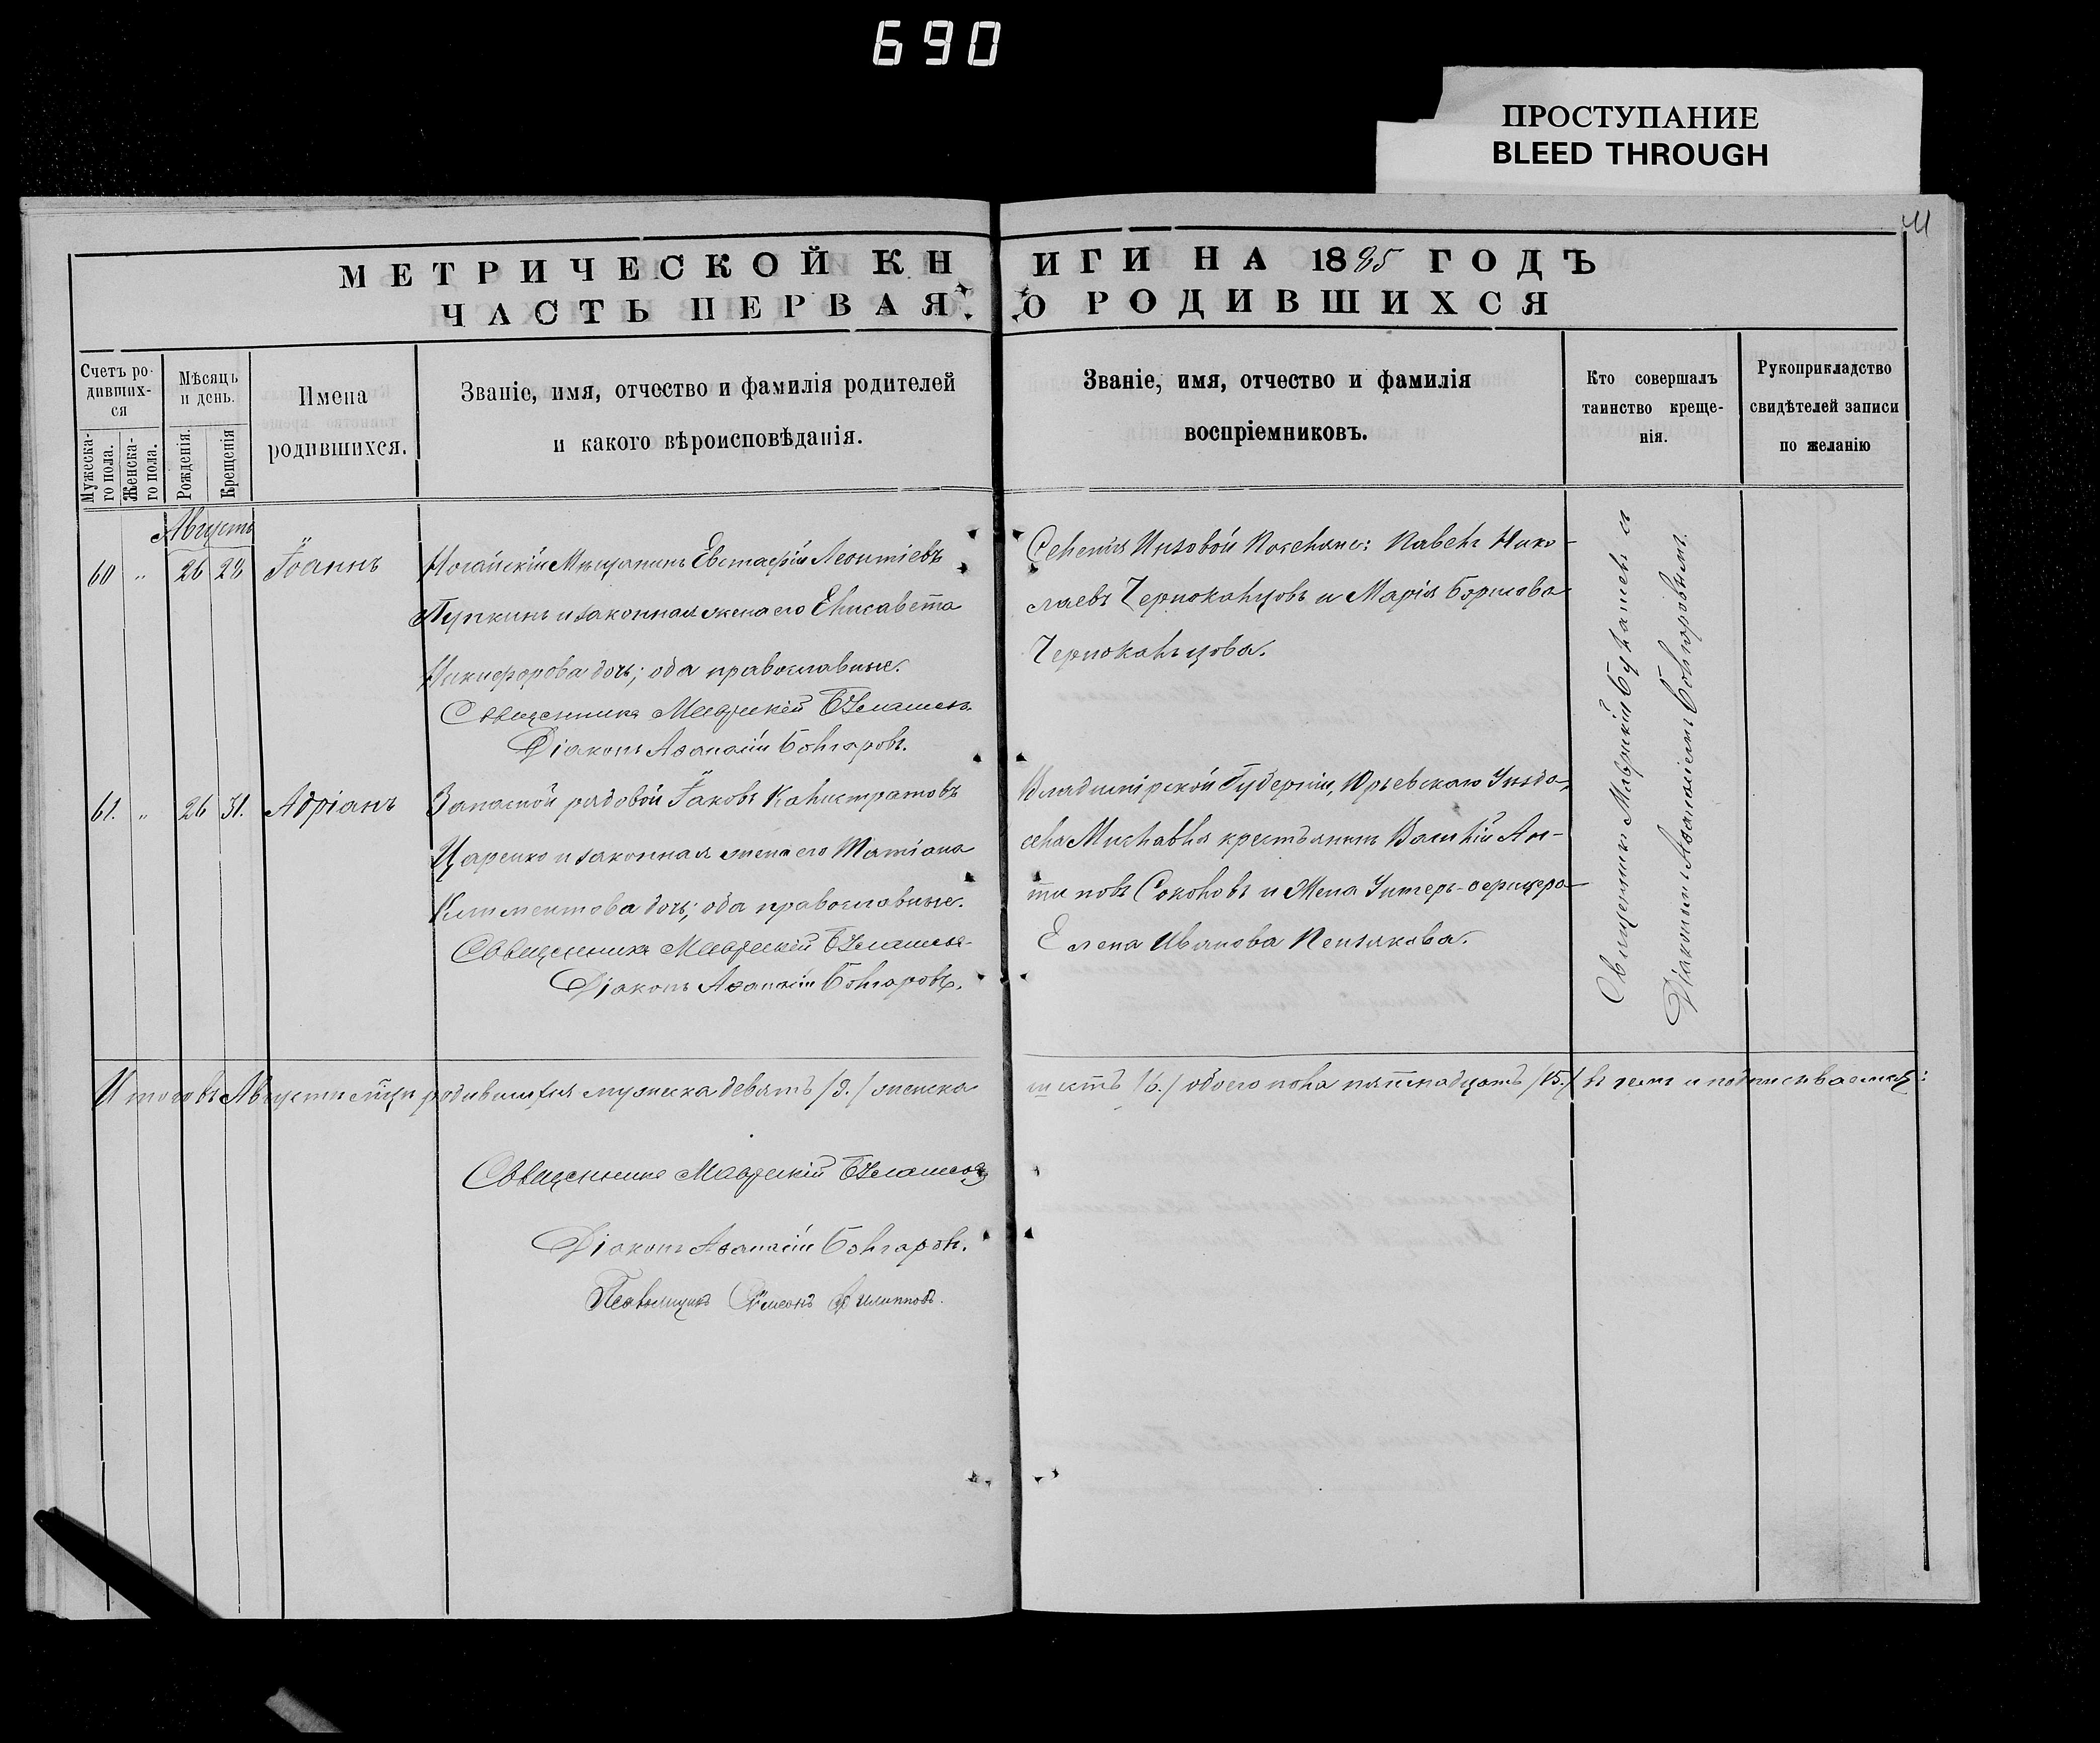 690
ПРОСТУПАНИЕ
BLEED THROUGH
МЕТРИЧЕСКОЙ КНИГИ НА 1885 ГОДЪ
ЧАСТЬ ПЕРВАЯ, О РОДИВШИХСЯ
Счетъ ро-
дивших-
ся
Мужеска-
го пола.
Женска-
го пола.
Мѣсяцъ
и день.
Рожденія.
Крещенія
Имена
родившихся.
Званіе, имя, отчество и фамилія родителей
и какого вѣроисповѣданія.
Званіе, имя, отчество и фамилія
воспріемниковъ.
Кто совершалъ
таинство креще-
нія.
Рукоприкладство
свидѣтелей записи
по желанію
Августъ
60 " 26 28 Іоаннъ
Ногайскій Мѣщанинъ Евстафій Леонтіевъ
и законная жена его Елисавета
Никифорова дочь; оба православные.
Священникъ Маврикій
Діаконъ Аѳанасій Болгаровъ.
Селенія Низовой Поселяне: Павелъ Нико-
лаевъ Чернокольцовъ и Марія Борисова
Чернокольцова.
61. " 26 31. Адріанъ
Запасной рядовой Іаковъ Калистратовъ
Царенко и законная жена его Татіана
Климентова дочь; оба православные.
Священникъ Маврикій
Діаконъ Аѳанасій Болгаровъ.
Владимірской Губерніи, Юрьевскаго Уѣзда,
села крестьянинъ Василій Ан-
типовъ Соколовъ и Жена Унтеръ-офицера
Елена Иванова Пензякова.
Священникъ Маврикій съ
Діакономъ Аѳанасіемъ Болгаровымъ.
Итого въ Августѣ мѣсяцѣ родившихся мужеска девять /9./ женска
шесть /6./ обоего пола пятнадцать /15./ въ чемъ и подписываемся:
Священникъ Маврикій
Діаконъ Аѳанасій Болгаровъ.
Псаломщикъ Симеонъ Филипповъ.